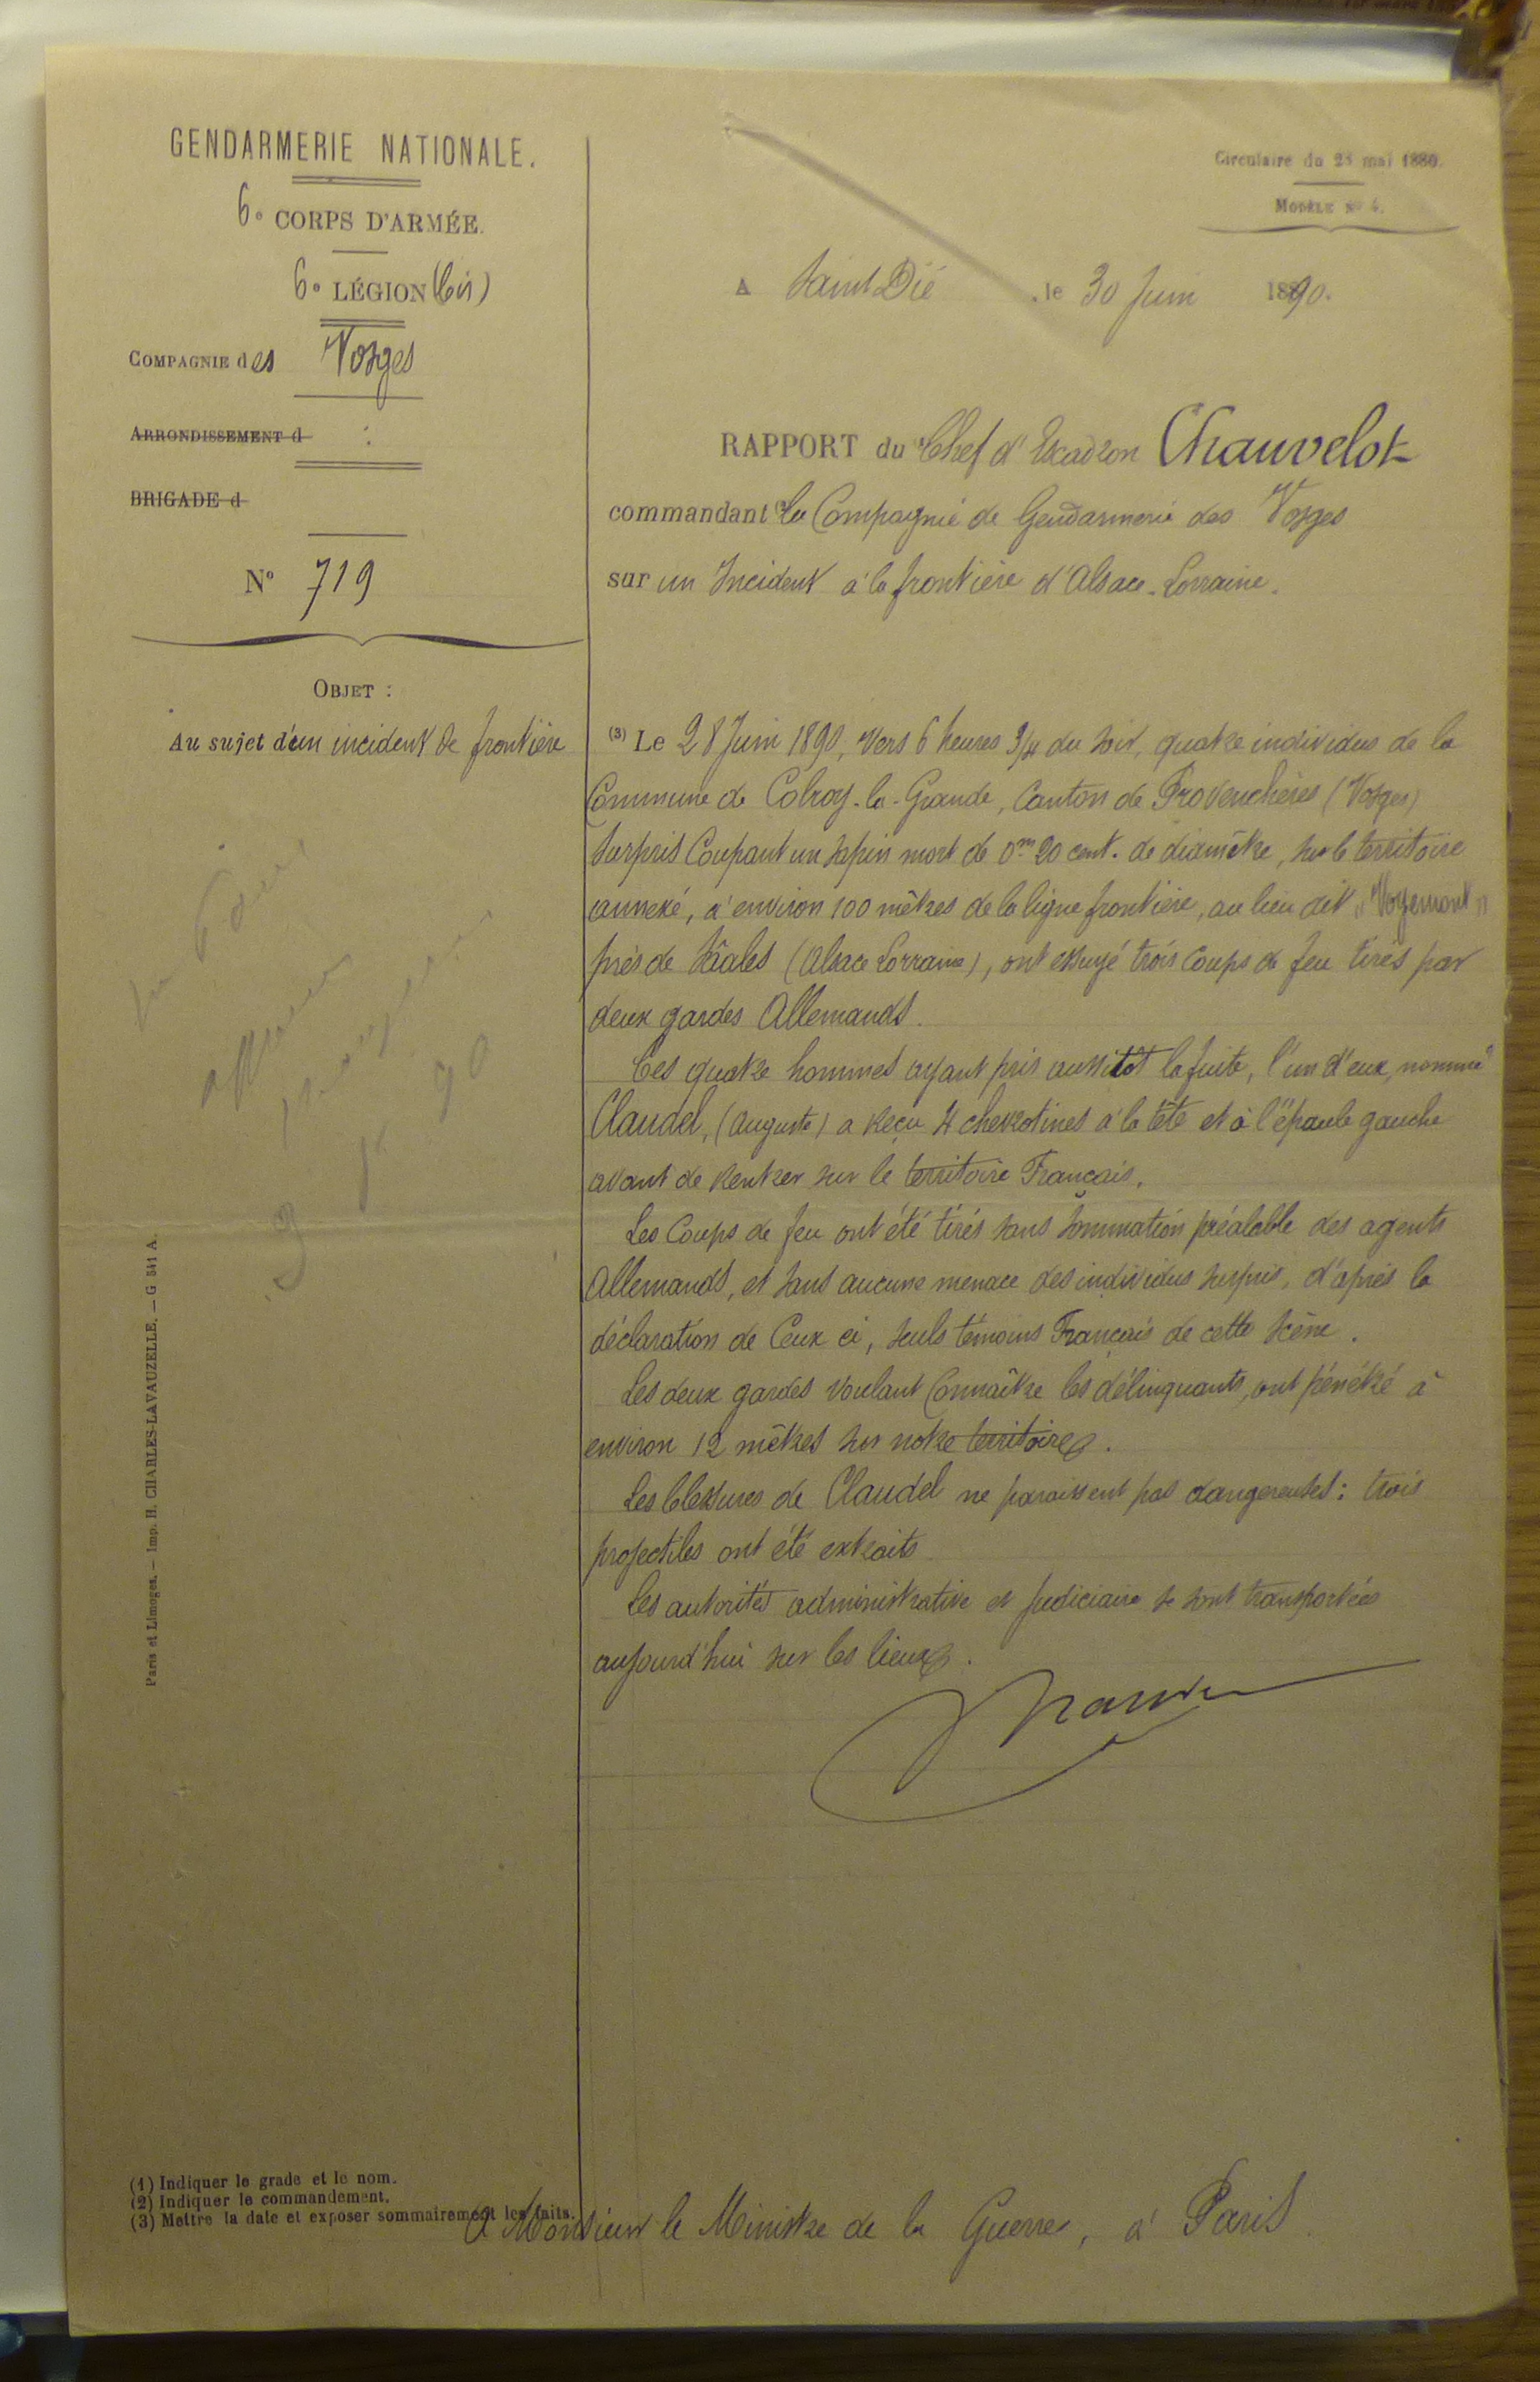 GENDARMERIE NATIONALE.
6e CORPS D'ARMÉE.
6e LÉGION (bis)
COMPAGNIE des Vosges
ARRONDISSEMENT d :
BRIGADE d
N° 719
OBJET :
Au sujet d'un incident de frontière
9 90
Paris et Limoges. — Imp. H. CHARLES-LAVAUZELLE. — G 541 A.
(1) Indiquer le grade et le nom.
(2) Indiquer le commandement.
(3) Mettre la date et exposer sommairement les faits.
Circulaire du 23 mai 1880.
MODÈLE N° 4.
A Saint Dié, le 30 Juin 1890.
RAPPORT du Chef d'Escadron Chauvelot
commandant la Compagnie de Gendarmerie des Vosges
sur un Incident à la frontière d'Alsace-Lorraine.
(3) Le 28 Juin 1890, vers 6 heures 3/4 du soir, quatre individus de la
Commune de Colroy-la-Grande, Canton de Provenchères (Vosges)
surpris Coupant un sapin mort de 0m20 cent. de diamètre, sur le territoire
annexé, à environ 100 mètres de la ligne frontière, au lieu dit „Voyemont"
près de Sâales (Alsace Lorraine), ont essuyé trois Coups de feu tirés par
deux gardes Allemands.
Ces quatre hommes ayant pris aussitôt la fuite, l'un d'eux, nommé
Claudel, (Auguste) a reçu 4 chevrotines à la tête et à l'épaule gauche
avant de rentrer sur le territoire Français.
Les Coups de feu ont été tirés sans sommation préalable des agents
Allemands, et sans aucune menace des individus surpris, d'après la
déclaration de Ceux ci, seuls témoins Français de cette scène.
Les deux gardes voulant Connaître les délinquants, ont pénétré à
environ 12 mètres sur notre territoire.
Les blessures de Claudel ne paraissent pas dangereuses : trois
projectiles ont été extraits
Les autorités administrative et Judiciaire se sont transportées
aujourd'hui sur les lieux.
A Monsieur le Ministre de la Guerre, à Paris.